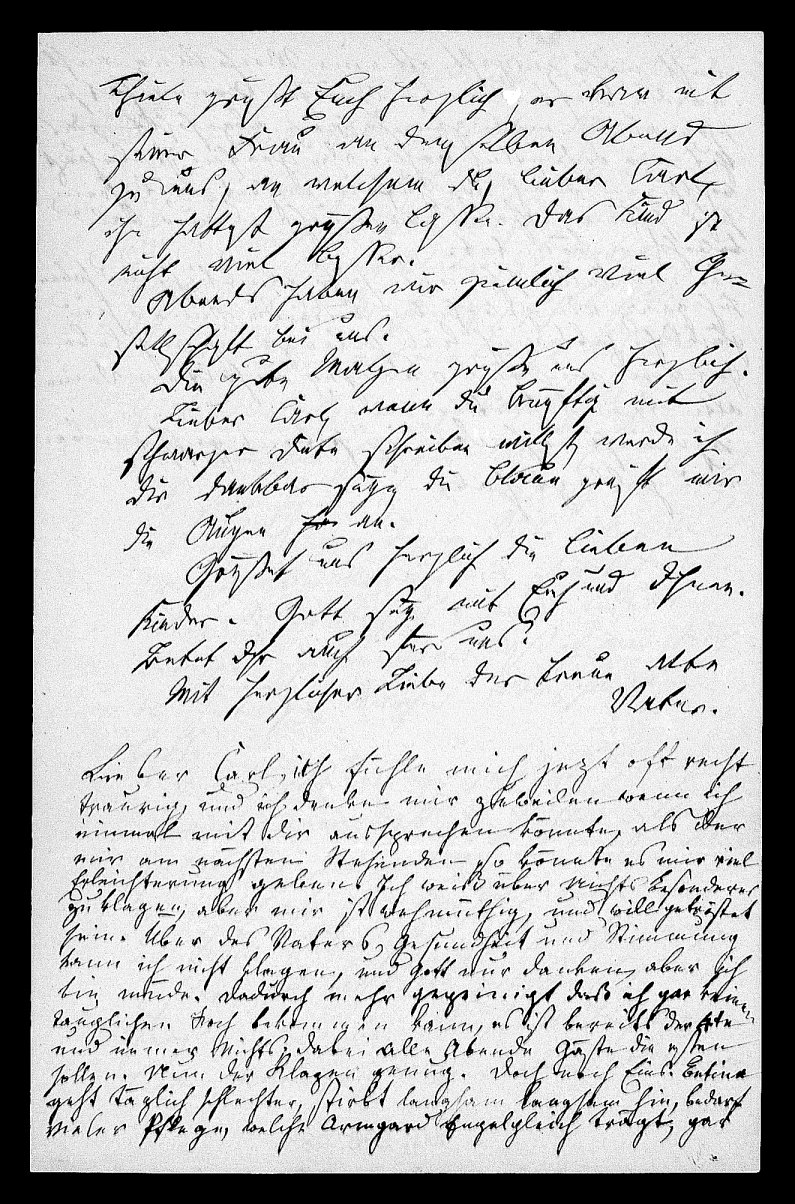 Thiele grüßt Euch herzlich, er kam mit
seiner Frau an demselben Abend
zu uns, an welchem du, lieber Carl,
ihn hattest grüßen lassen. Das Kind ist
nicht viel besser.
Abends haben wir ziemlich viel Ge-
sellschaft bei uns.
Die gute grüßt uns herzlich.
Lieber Carl, wenn du künftig mit
schwarzer Dinte schreiben willst, werde ich
dir dankbar sein, die blaue greift mir
die Augen an.
Grüßet uns herzlich die lieben
Kinder. Gott sei mit Euch und Ihnen.
Betet Ihr auch für uns!
Mit herzlicher Liebe der treue alte
Vater.
Lieber Carl, ich fühle mich jezt oft recht
traurig, und ich denke mir zuweilen wenn ich
einmal mit dir aussprechen könnte, als der
mir am nächsten Stehenden, so könnte es mir viel
Erleichterung geben. Ich weiß über Nichts besonderes
zu klagen, aber mir ist wehmüthig, und will getröstet
sein. Über des Vaters Gesundheit und Stimmung
kann ich nicht klagen, und Gott nur danken, aber ich
bin müde. Dadurch mehr gepeinigt daß ich gar keinen
tauglichen Koch bekommen kann, es ist bereits der 4te
und immer Nichts. dabei alle Abende Gäste die essen
sollen. Nun der Klagen genug. Doch noch Eins. Betina
geht täglich schlechter, stirbt langsam langsam hin, bedarf
vieler Pflege, welche Armgard Engelgleich trägt, gar